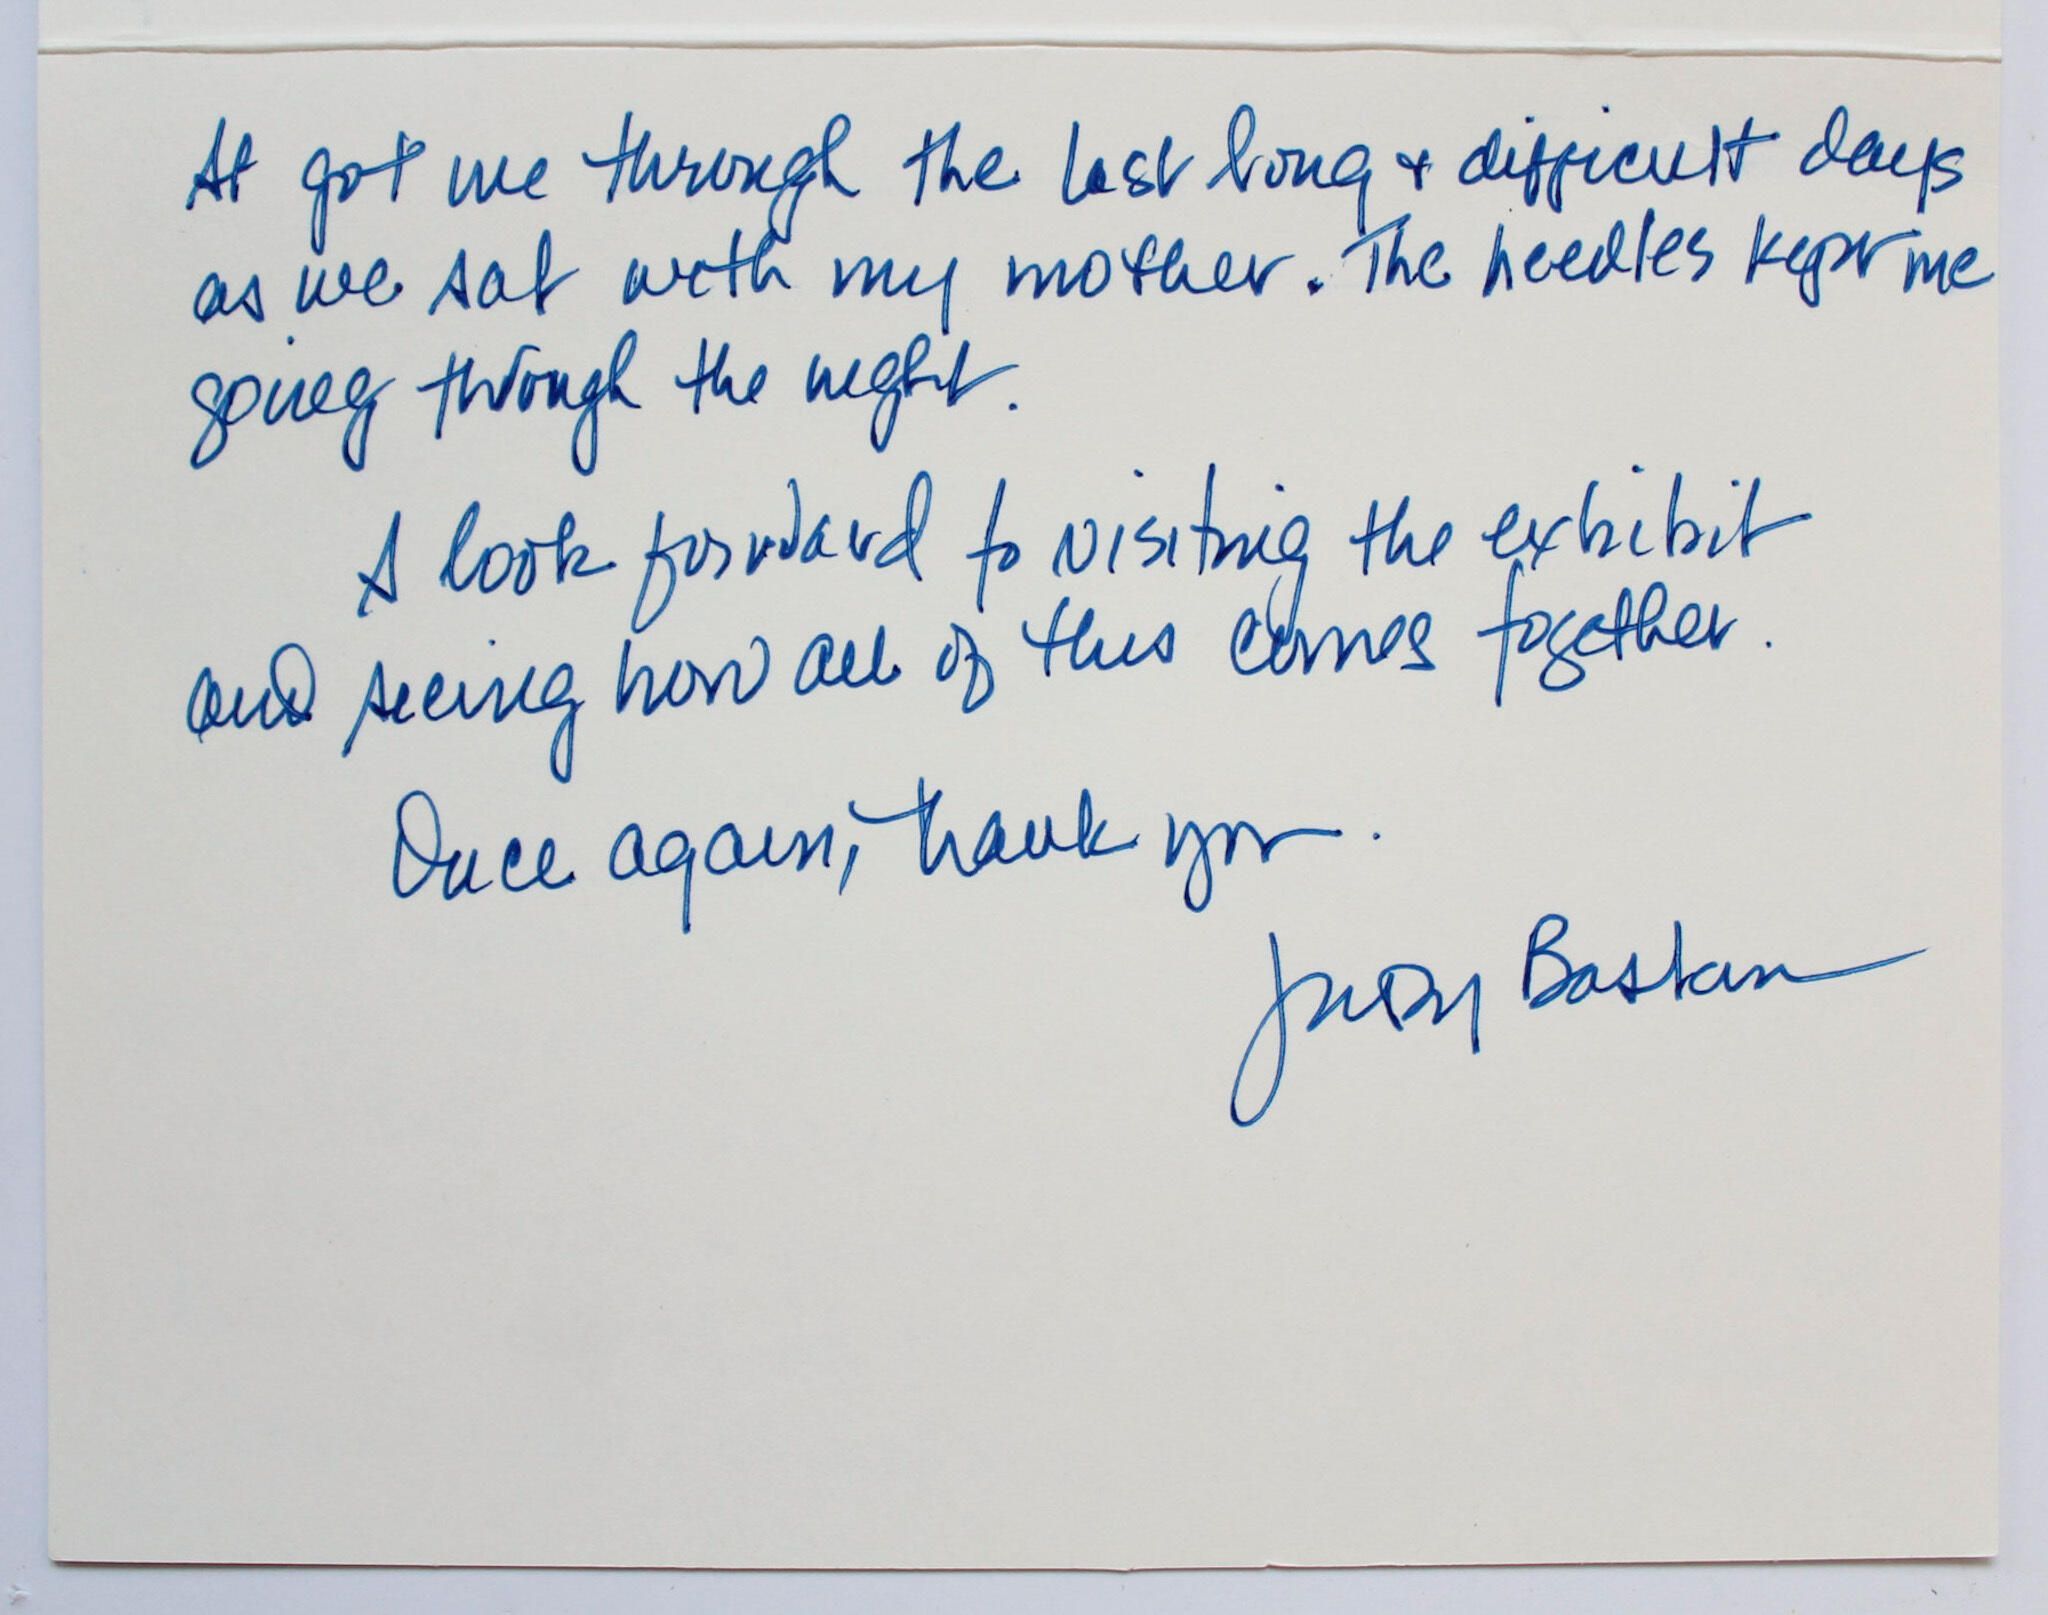 It got me through the last long + difficult days
as we sat with my mother. The needles kept me
going through the night.
I look forward to visiting the exhibit
and seeing how all of this comes together.
Once again, thank you.
Judy Bastan